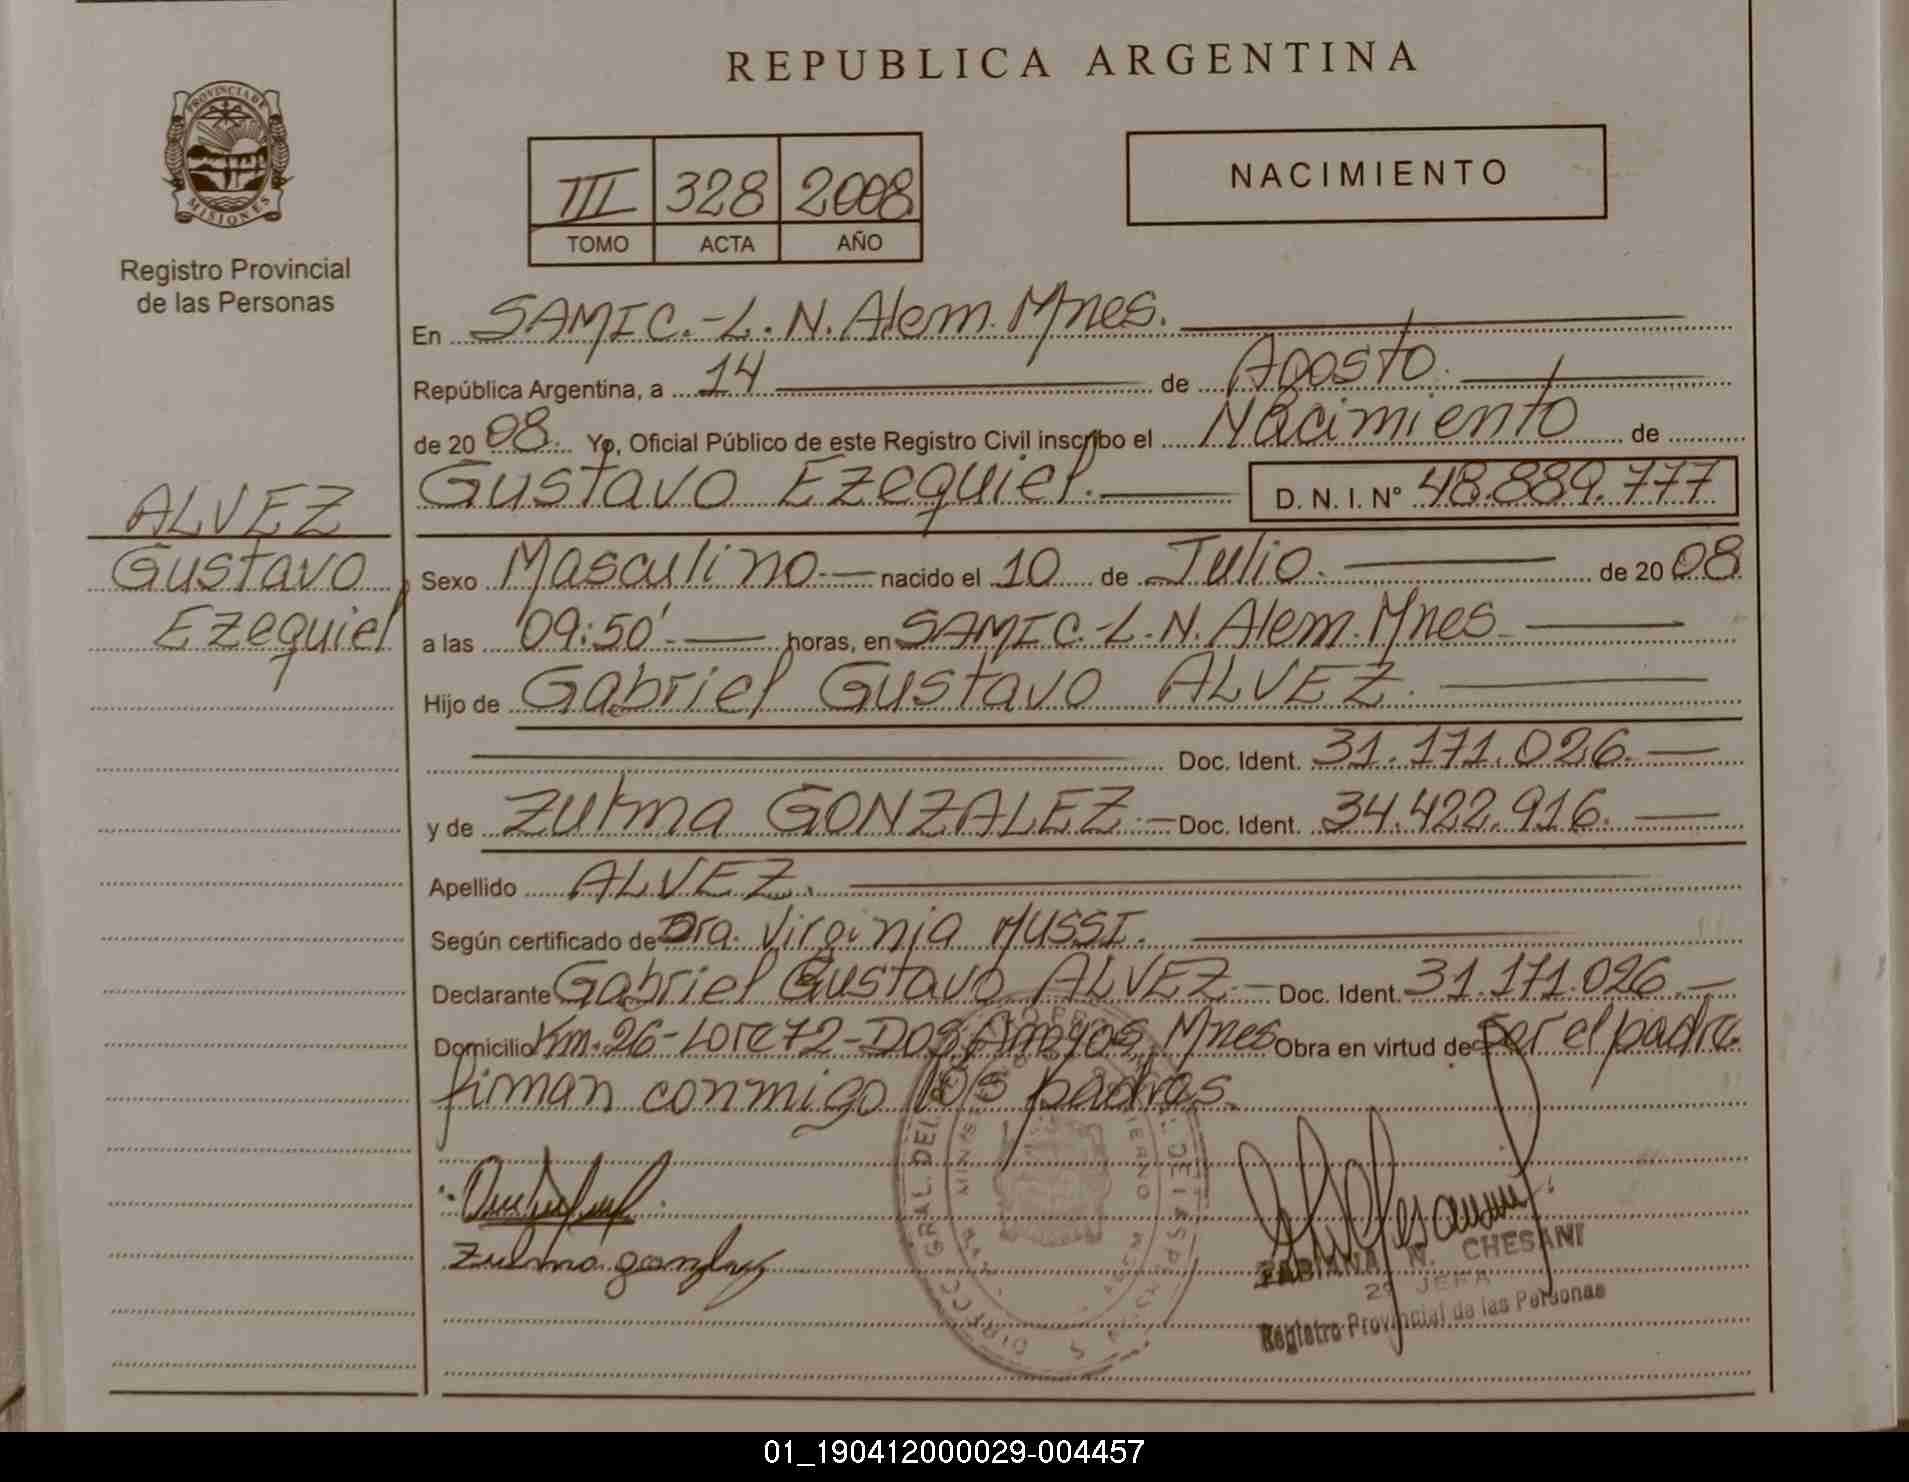 REPUBLICA ARGENTINA
PROVINCIA DE
MISIONES
Registro Provincial
de las Personas
III 328 2008
TOMO ACTA AÑO
NACIMIENTO
En SAMIC.-L.N.Alem.Mnes.
República Argentina, a 14 de Agosto.
de 20 08. Yo, Oficial Público de este Registro Civil inscribo el Nacimiento de
Gustavo Ezequiel. D. N. I. Nº 48.889.777
ALVEZ
Gustavo
Ezequiel
Sexo Masculino.- nacido el 10 de Julio. de 20 08.
a las 09:50'.- horas, en SAMIC.-L.N.Alem.Mnes.
Hijo de Gabriel Gustavo ALVEZ.
Doc. Ident. 31.171.026.-
y de Zulma GONZALEZ.- Doc. Ident. 34.422.916.-
Apellido ALVEZ.
Según certificado de Dra. Virginia MUSSI.
Declarante Gabriel Gustavo ALVEZ.- Doc. Ident. 31.171.026.-
Domicilio Km.26-Lote72-Dos Arroyos, Mnes Obra en virtud de ser el padre
firman conmigo los padres.
Zulma gonzalez
FABIANA N. CHESANI
JEFA
Registro Provincial de las Personas
01_190412000029-004457